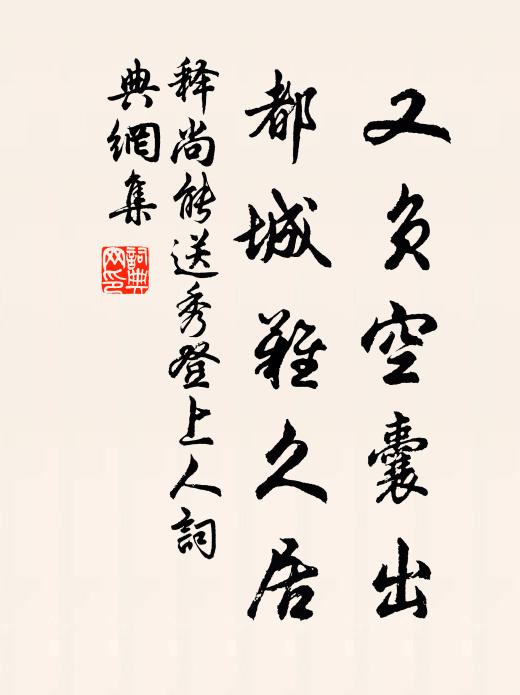 又负空囊出
都城难久居
释尚能送秀登上人词
典網集
詞典
网印